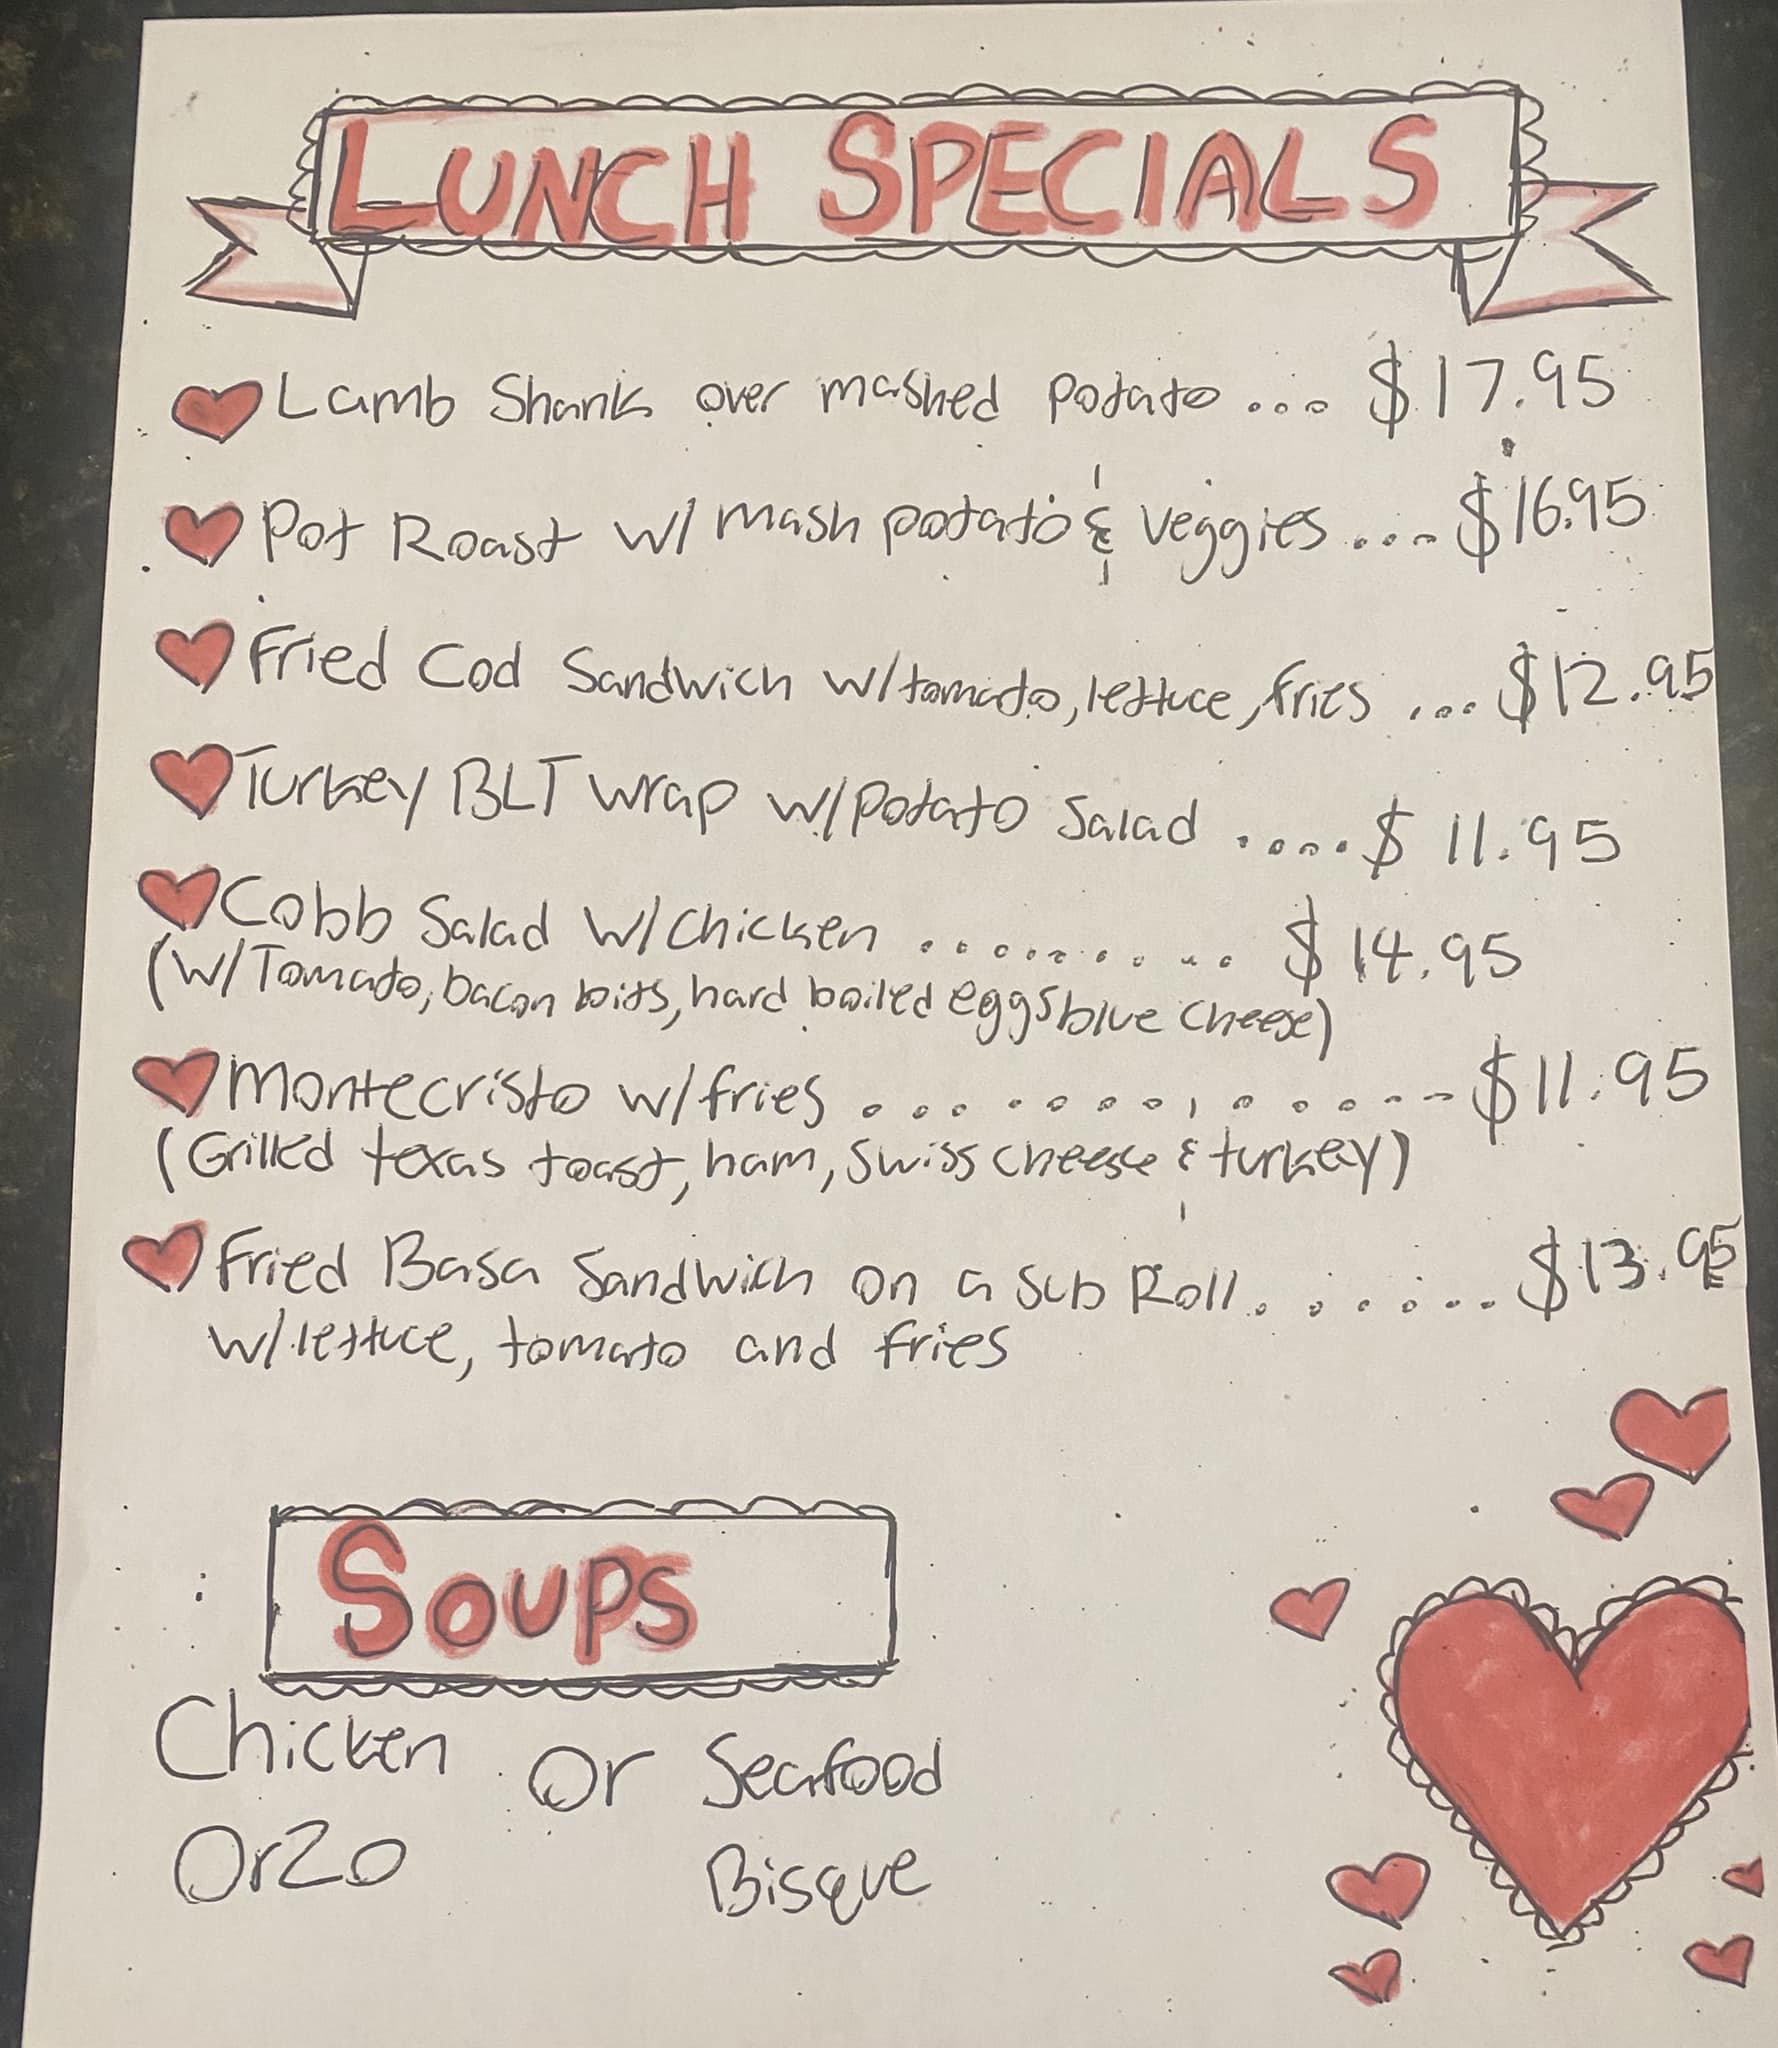 LUNCH SPECIALS
Lamb Shank over mashed potato ... $17.95
Pot Roast w/ mash potato & veggies .... $16.95
Fried Cod Sandwich w/tomato, lettuce, fries ... $12.95
Turkey BLT wrap w/potato Salad ..... $ 11.95
Cobb Salad w/chicken .......... $ 14.95
(w/Tomato, bacon bits, hard boiled eggs blue cheese)
Montecristo w/fries .............. $11.95
(Grilled texas toast, ham, swiss cheese & turkey)
Fried Basa Sandwich on a sub Roll ....... $13.95
w/lettuce, tomato and fries
SOUPS
Chicken or Seafood
Orzo Bisque